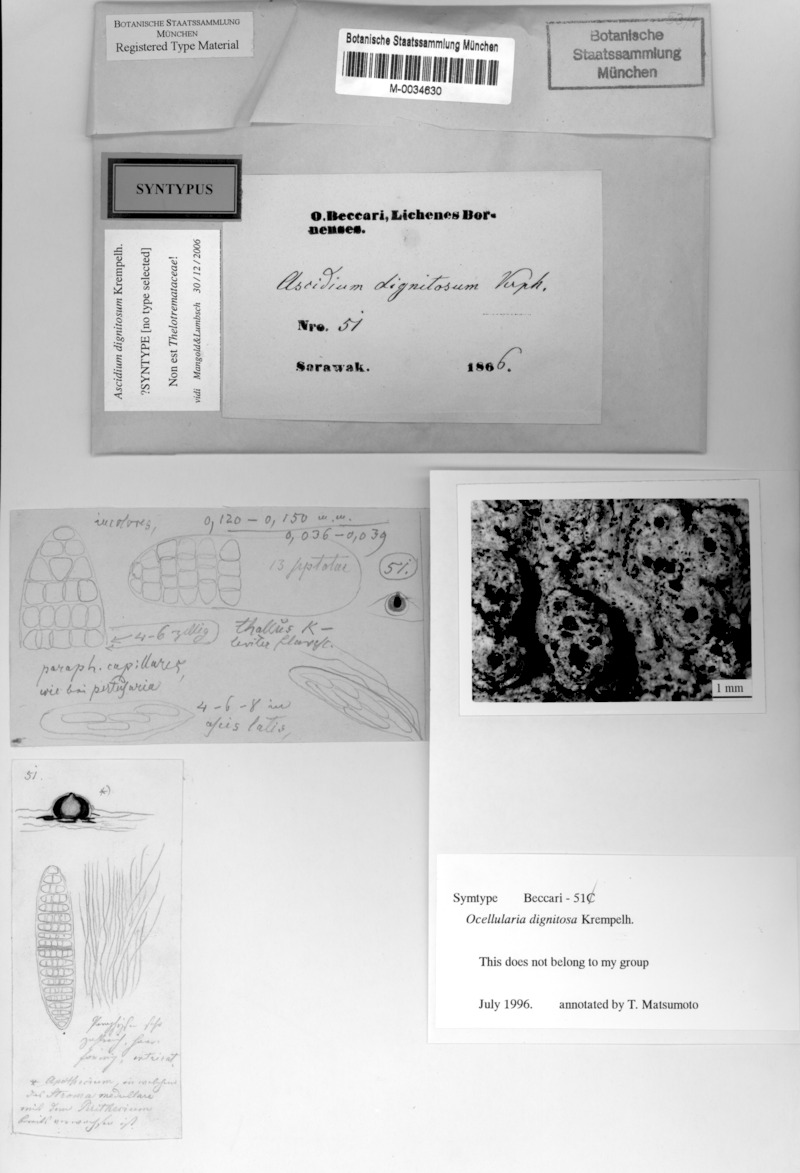 BOTANISCHE STAATSSAMMLUNG
MÜNCHEN
Registered Type Material
Botanische Staatssammlung München
M-0034630
Botanische
Staatssammlung
München
SYNTYPUS
Ascidium dignitosum Krempelh.
?SYNTYPE [no type selected]
Non est Thelotremataceae!
vidi Mangold&Lumbsch 30/12/2006
O. Beccari, Lichenes Bor-
neenses.
Ascidium dignitosum Krph.
Nro. 51
Sarawak. 1866.
incolores,
0,120 – 0,150 m.m.
0,036 – 0,039
13 septatae
51.
4-6 zellig
thallus K –
paraph. capillares,
wie bei pertusaria
4-6-8 in
ascis latis,
1 mm
51.
Symtype Beccari - 51C
Ocellularia dignitosa Krempelh.
This does not belong to my group
July 1996. annotated by T. Matsumoto
Apothecium, in welchem
das Stroma medullare
mit dem Perithecium
verwachsen ist.